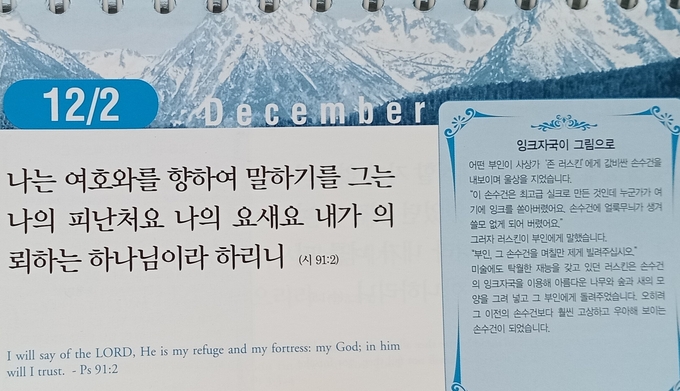 12/2
December
나는 여호와를 향하여 말하기를 그는
나의 피난처요 나의 요새요 내가 의
뢰하는 하나님이라 하리니 (시 91:2)
I will say of the LORD, He is my refuge and my fortress: my God; in him
will I trust. - Ps 91:2
잉크자국이 그림으로
어떤 부인이 사상가 '존 러스킨'에게 값비싼 손수건을
내보이며 울상을 지었습니다.
"이 손수건은 최고급 실크로 만든 것인데 누군가가 여
기에 잉크를 쏟아버렸어요. 손수건에 얼룩무늬가 생겨
쓸모 없게 되어 버렸어요."
그러자 러스킨이 부인에게 말했습니다.
"부인, 그 손수건을 며칠만 제게 빌려주십시오."
미술에도 탁월한 재능을 갖고 있던 러스킨은 손수건
의 잉크자국을 이용해 아름다운 나무와 숲과 새의 모
양을 그려 넣고 그 부인에게 돌려주었습니다. 오히려
그 이전의 손수건보다 훨씬 고상하고 우아해 보이는
손수건이 되었습니다.